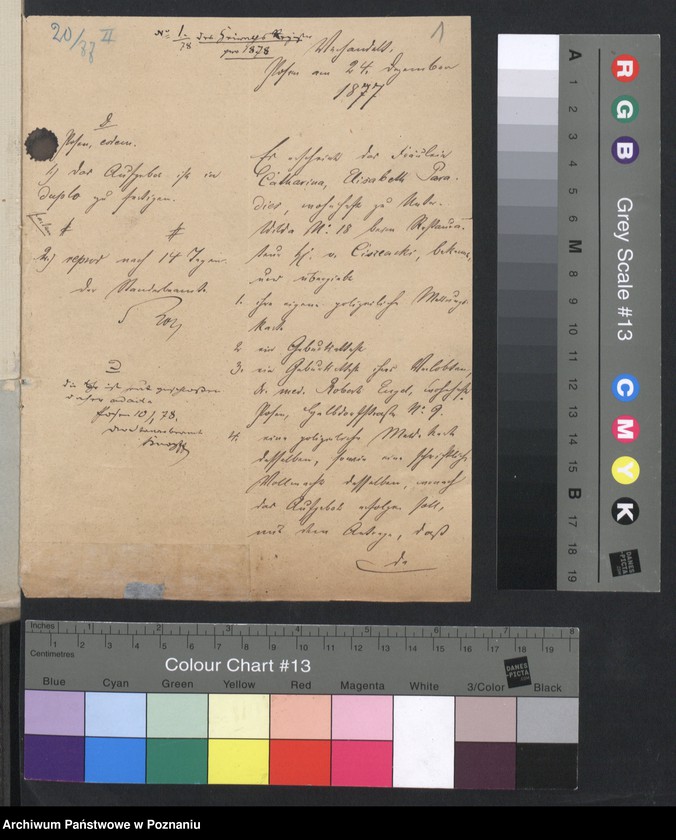 20/33 II
1
No 1/78 des Heiraths Register
pro 1878
Verhandelt,
Posen am 24. Dezember
1877
Posen, eodem.
1) das Aufgebot ist in
duplo zu fertigen.
2.) repr nach 14 Tagen.
Der Standesbeamte
Posen 10/1, 78.
der Standesbeamte
Es erscheint das Fräulein
Catharina, Elisabeth Para-
dies, wohnhaft zu Unter-
Wilda No. 18 beim Restaura-
teur v. bekannt,
und übergiebt
1. ihre eigene polizeiliche Meldungs-
karte
2. ein Geburtsattest
3. ein Geburtsattest ihres Verlobten,
dr. med. Robert Engel, wohnhaft
Posen, Halbdorfstraße No. 9.
4. eine polizeiliche Meld. karte
desselben, sowie eine schriftliche
Vollmacht desselben, wonach
das Aufgebot erfolgen soll,
mit dem Antrage, daß
da
A 1 2 3 4 5 6 M 8 9 10 11 12 13 14 15 B 17 18 19
R G B
Grey Scale #13
C M Y K
DANES
-PICTA
.COM
Inches 1 2 3 4 5 6 7 8
1 2 3 4 5 6 7 8 9 10 11 12 13 14 15 16 17 18 19
Centimetres
Colour Chart #13
DANES
-PICTA
.COM
Blue Cyan Green Yellow Red Magenta White 3/Color Black
Archiwum Państwowe w Poznaniu